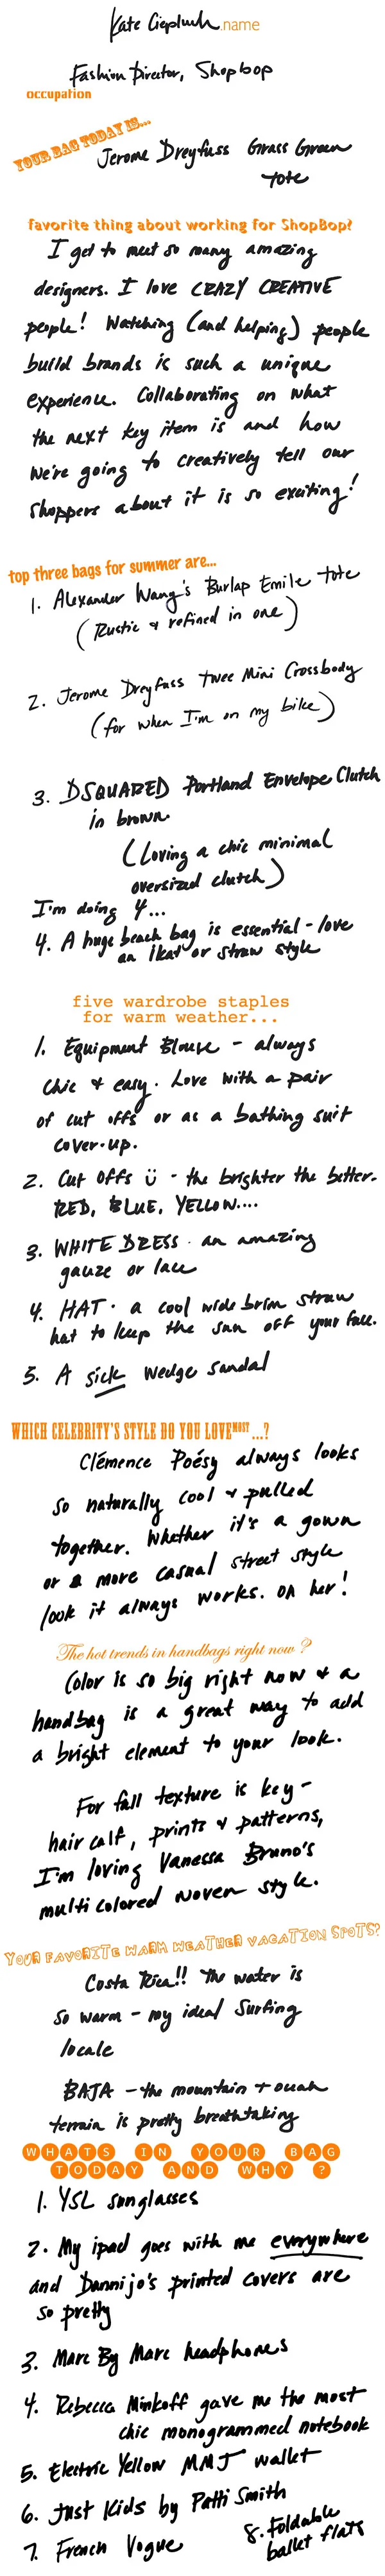 Kate Ciepluch name
Fashion Director, Shopbop
occupation
YOUR BAG TODAY IS...
Jerome Dreyfuss Grass Green
tote
favorite thing about working for ShopBop?
I get to meet so many amazing
designers. I love CRAZY CREATIVE
people! Watching (and helping) people
build brands is such a unique
experience. Collaborating on what
the next key item is and how
we're going to creatively tell our
shoppers about it is so exciting!
top three bags for summer are...
1. Alexander Wang's Burlap Emile tote
(Rustic & refined in one)
2. Jerome Dreyfuss Twee Mini Crossbody
(for when I'm on my bike)
3. DSQUARED Portland Envelope Clutch
in brown
(Loving a chic minimal
oversized clutch)
I'm doing 4...
4. A huge beach bag is essential - love
an Ikat or straw style
five wardrobe staples
for warm weather...
1. Equipment Blouse - always
chic & easy. Love with a pair
of cut offs or as a bathing suit
cover-up.
2. Cut Offs ü - the brighter the better.
RED, BLUE, YELLOW....
3. WHITE DRESS - an amazing
gauze or lace
4. HAT - a cool wide brim straw
hat to keep the sun off your face.
5. A sick wedge sandal
WHICH CELEBRITY'S STYLE DO YOU LOVE MOST ...?
Clémence Poésy always looks
so naturally cool & pulled
together. Whether it's a gown
or a more casual street style
look it always works. on her!
The hot trends in handbags right now ?
Color is so big right now & a
handbag is a great way to add
a bright element to your look.
For fall texture is key -
hair calf, prints & patterns,
I'm loving Vanessa Bruno's
multi colored woven style.
YOUR FAVORITE WARM WEATHER VACATION SPOTS?
Costa Rica!! The water is
so warm - my ideal surfing
locale
BAJA - the mountain + ocean
terrain is pretty breathtaking
WHATS IN YOUR BAG
TODAY AND WHY ?
1. YSL sunglasses
2. My ipad goes with me everywhere
and Dannijo's printed covers are
so pretty
3. Marc By Marc headphones
4. Rebecca Minkoff gave me the most
chic monogrammed notebook
5. Electric Yellow MMJ wallet
6. Just Kids by Patti Smith
7. French Vogue
8. Foldable
ballet flats